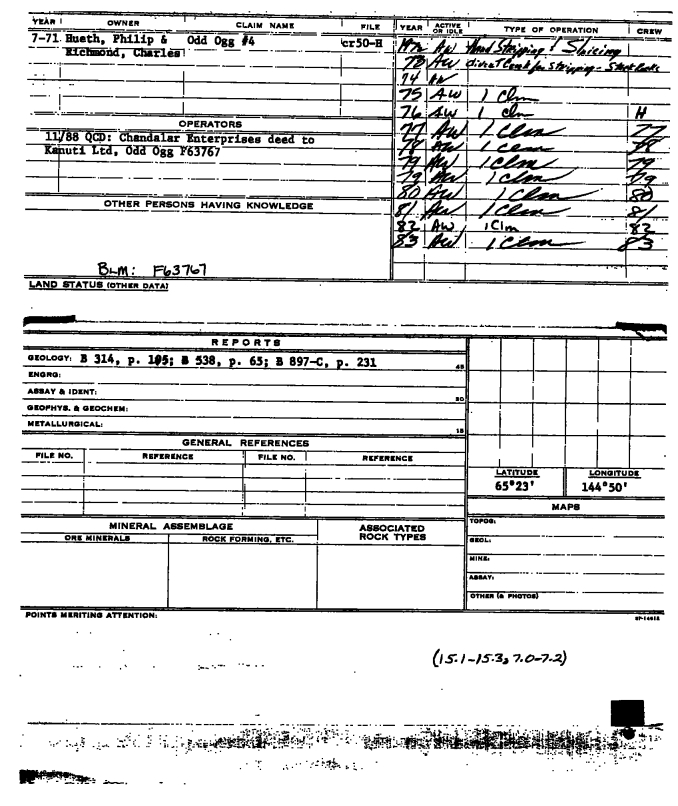 YEAR OWNER CLAIM NAME FILE YEAR ACTIVE OR IDLE TYPE OF OPERATION CREW
7-71 Hueth, Philip & Odd Ogg #4 cr50-H
Richmond, Charles
72 AW Hand Stripping & Sluicing
73 AW
74 AW
75 AW 1 Clm
76 AW 1 Clm H
OPERATORS
77 AW 1 Clm 77
11/88 QCD: Chandalar Enterprises deed to
78 AW 1 Clm 78
Kanuti Ltd, Odd Ogg F63767
79 AW 1 Clm 79
79 AW 1 Clm 79
80 AW 1 Clm 80
OTHER PERSONS HAVING KNOWLEDGE
81 AW 1 Clm 81
82 AW 1 Clm 82
83 AW 1 Clm 83
BLM: F63767
LAND STATUS (OTHER DATA)
REPORTS
GEOLOGY: B 314, p. 105; B 538, p. 65; B 897-C, p. 231
45
ENGRG:
ASSAY & IDENT:
30
GEOPHYS. & GEOCHEM:
METALLURGICAL:
15
GENERAL REFERENCES
FILE NO. REFERENCE FILE NO. REFERENCE
LATITUDE LONGITUDE
65°23' 144°50'
MAPS
MINERAL ASSEMBLAGE ASSOCIATED ROCK TYPES
ORE MINERALS ROCK FORMING, ETC.
TOPOG:
GEOL:
MINE:
ASSAY:
OTHER (& PHOTOS)
POINTS MERITING ATTENTION:
(15.1-15.3, 7.0-7.2)